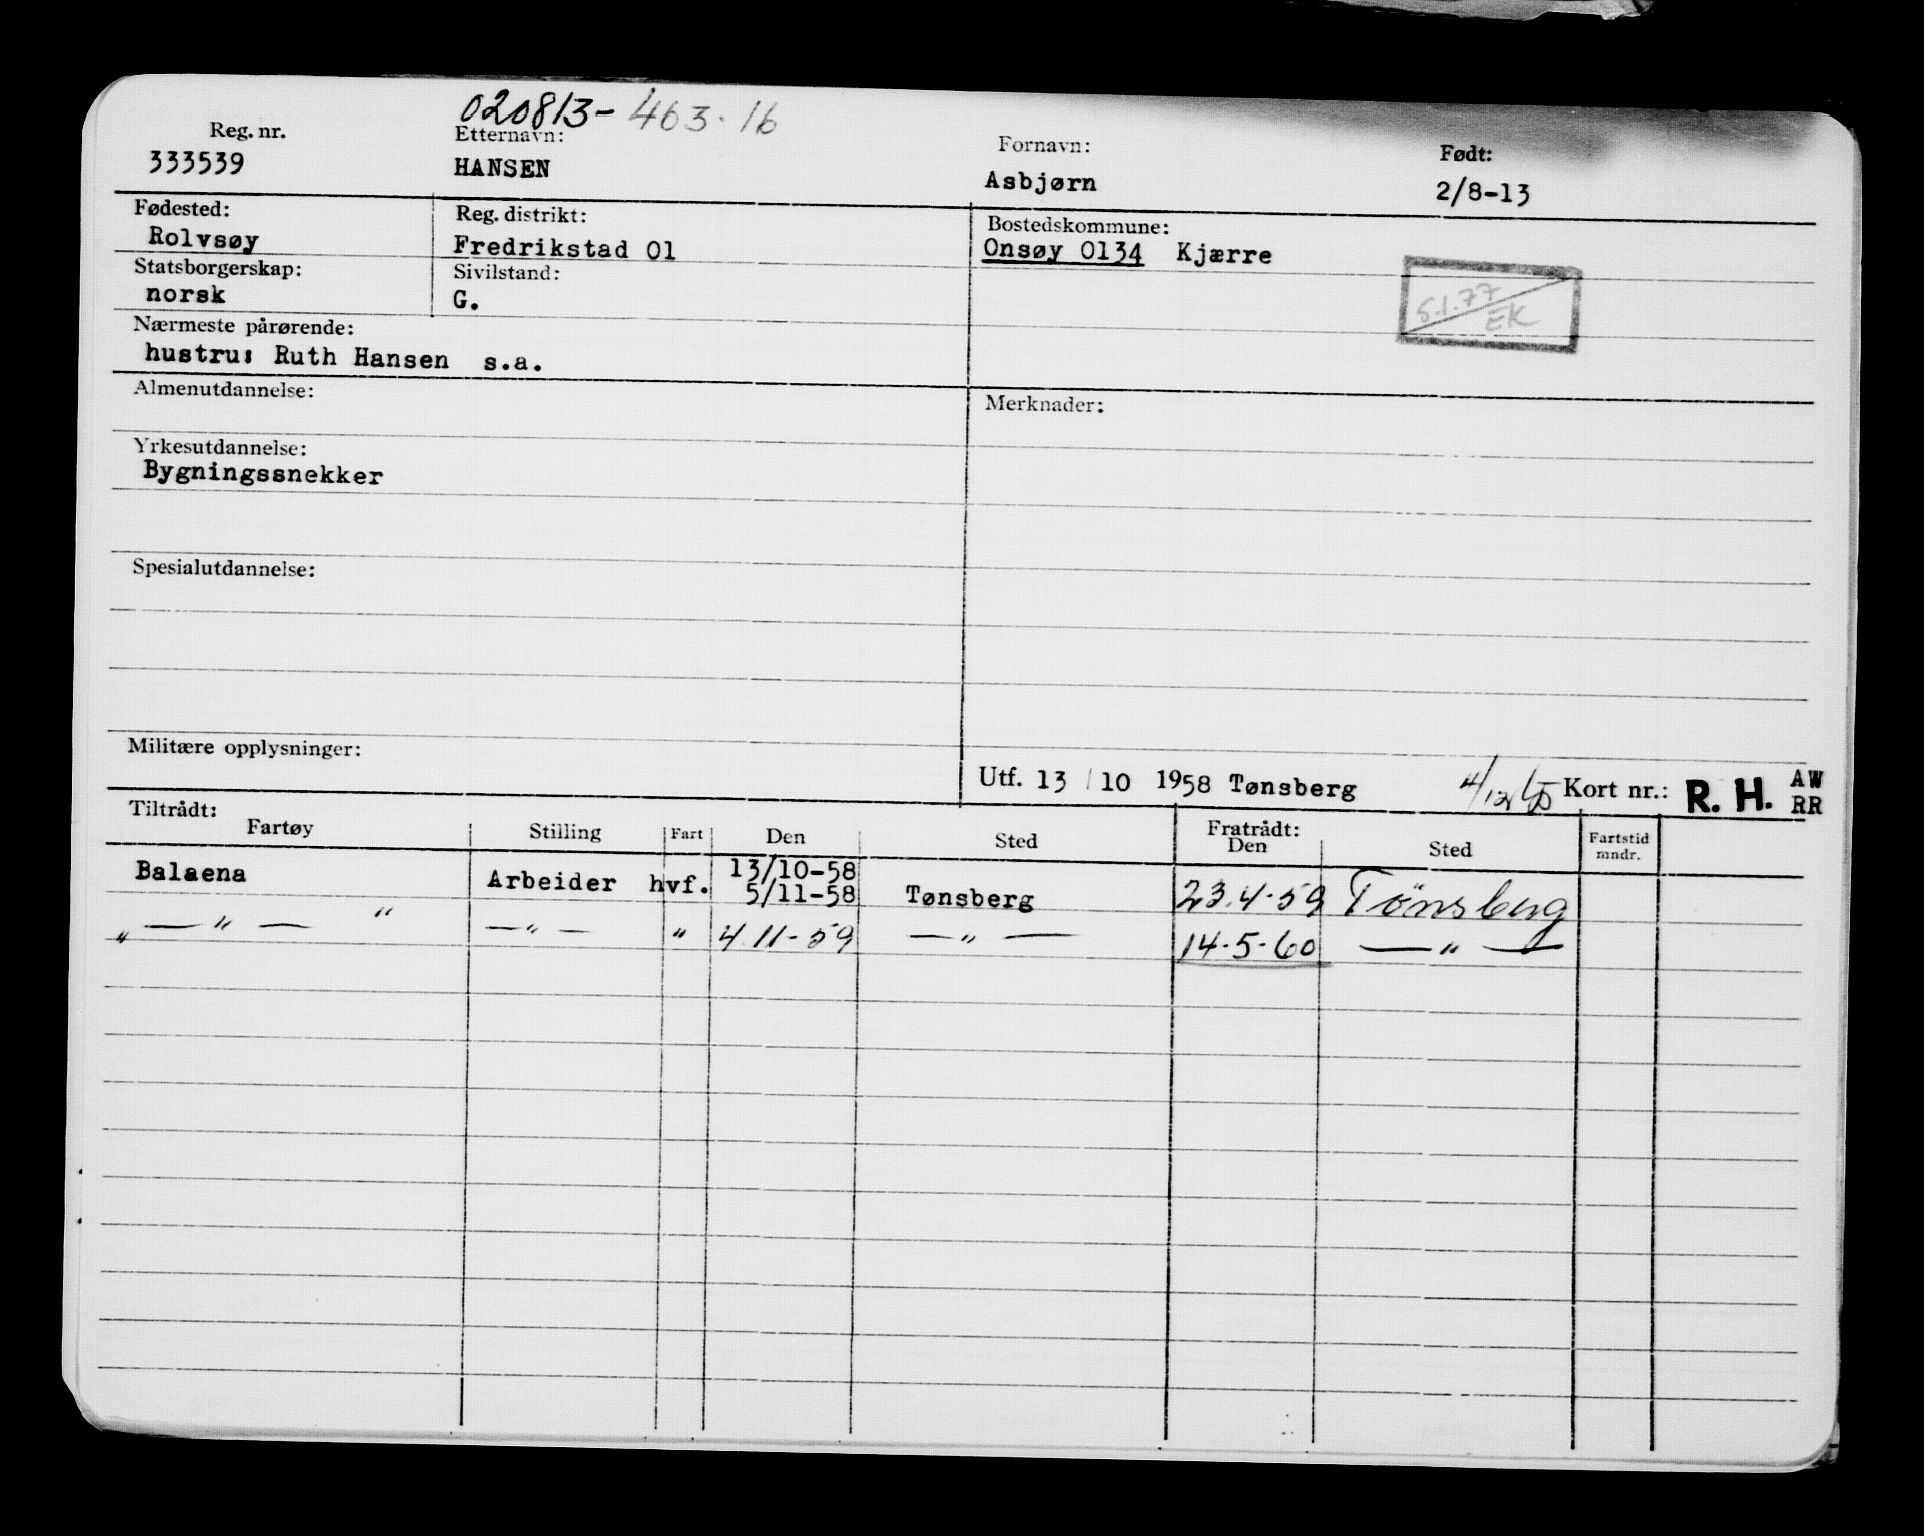 020813- 463.16
Reg. nr. Etternavn: Fornavn: Født:
333539 HANSEN Asbjørn 2/8-13
Fødested: Reg. distrikt: Bostedskommune:
Rolvsøy Fredrikstad 01 Onsøy 0134 Kjærre
Statsborgerskap: Sivilstand:
norsk G.
5.1.77
EK
Nærmeste pårørende:
hustru: Ruth Hansen s.a.
Almenutdannelse: Merknader:
Yrkesutdannelse:
Bygningssnekker
Spesialutdannelse:
Militære opplysninger:
Utf. 13/10 1958 Tønsberg 4/12 Kort nr.: R. H. AW
RR
Tiltrådt: Fratrådt:
Fartøy Stilling Fart Den Sted Den Sted Fartstid mndr.
Balaena Arbeider hvf. 13/10-58
5/11-58 Tønsberg 23.4.59 Tønsberg
„ — " — " — " — " 4.11-59 — " — 14-5-60 — " —